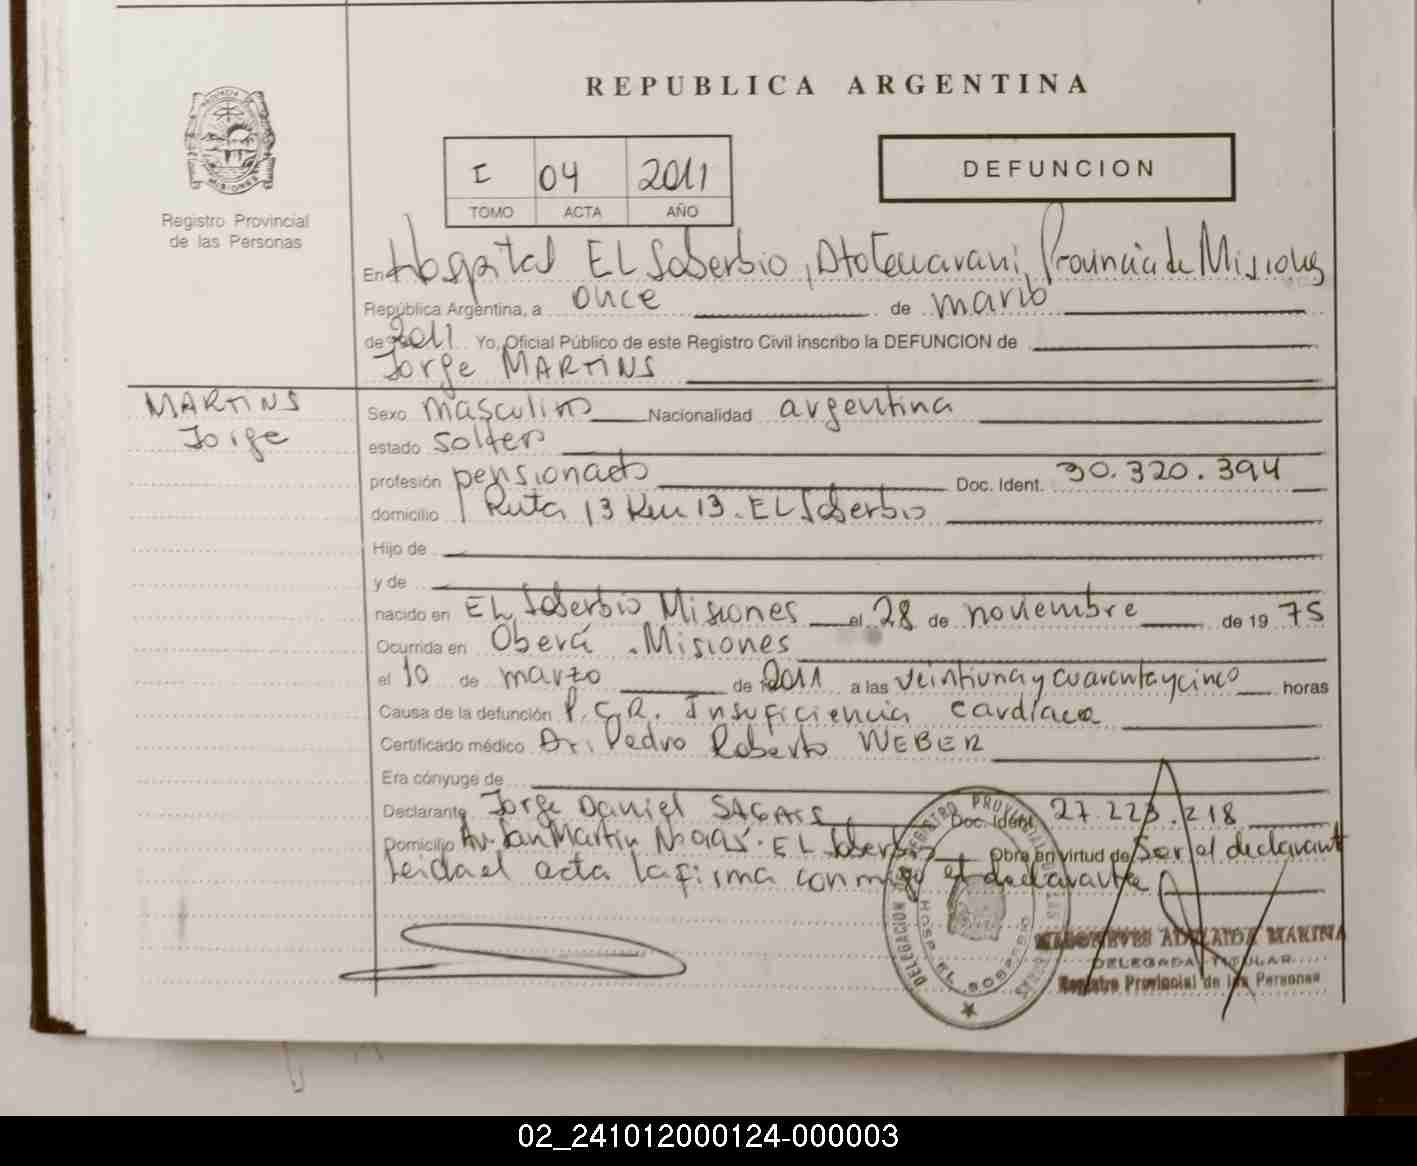 REPUBLICA ARGENTINA
I 04 2011
TOMO ACTA AÑO
DEFUNCION
Registro Provincial
de las Personas
En Hospital EL Soberbio, Dto Guarani, Provincia de Misiones
República Argentina, a once de marzo
de 2011 Yo, Oficial Público de este Registro Civil inscribo la DEFUNCION de
Jorge MARTINS
MARTINS
Jorge
Sexo masculino Nacionalidad argentina
estado soltero
profesión pensionado Doc. Ident. 30.320.394
domicilio Ruta 13 Km 13. EL Soberbio
Hijo de
y de
nacido en EL Soberbio Misiones el 28 de noviembre de 19 75
Ocurrida en Oberá . Misiones
el 10 de marzo de 2011 a las veintiuna y cuarenta y cinco horas
Causa de la defunción P.C.R. Insuficiencia cardíaca
Certificado médico Dr. Pedro Roberto WEBER
Era cónyuge de
Declarante Jorge Daniel Doc. Ident. 27.223.218
Domicilio Av. San Martin EL Soberbio Obra en virtud de Ser el declarante
leida el acta la firma conmigo el declarante
DELEGACION REGISTRO PROVINCIAL DE LAS PERSONAS
HOSP. EL SOBERBIO
ADELAIDA MARINA
DELEGADA TITULAR
Registro Provincial de las Personas
02_241012000124-000003